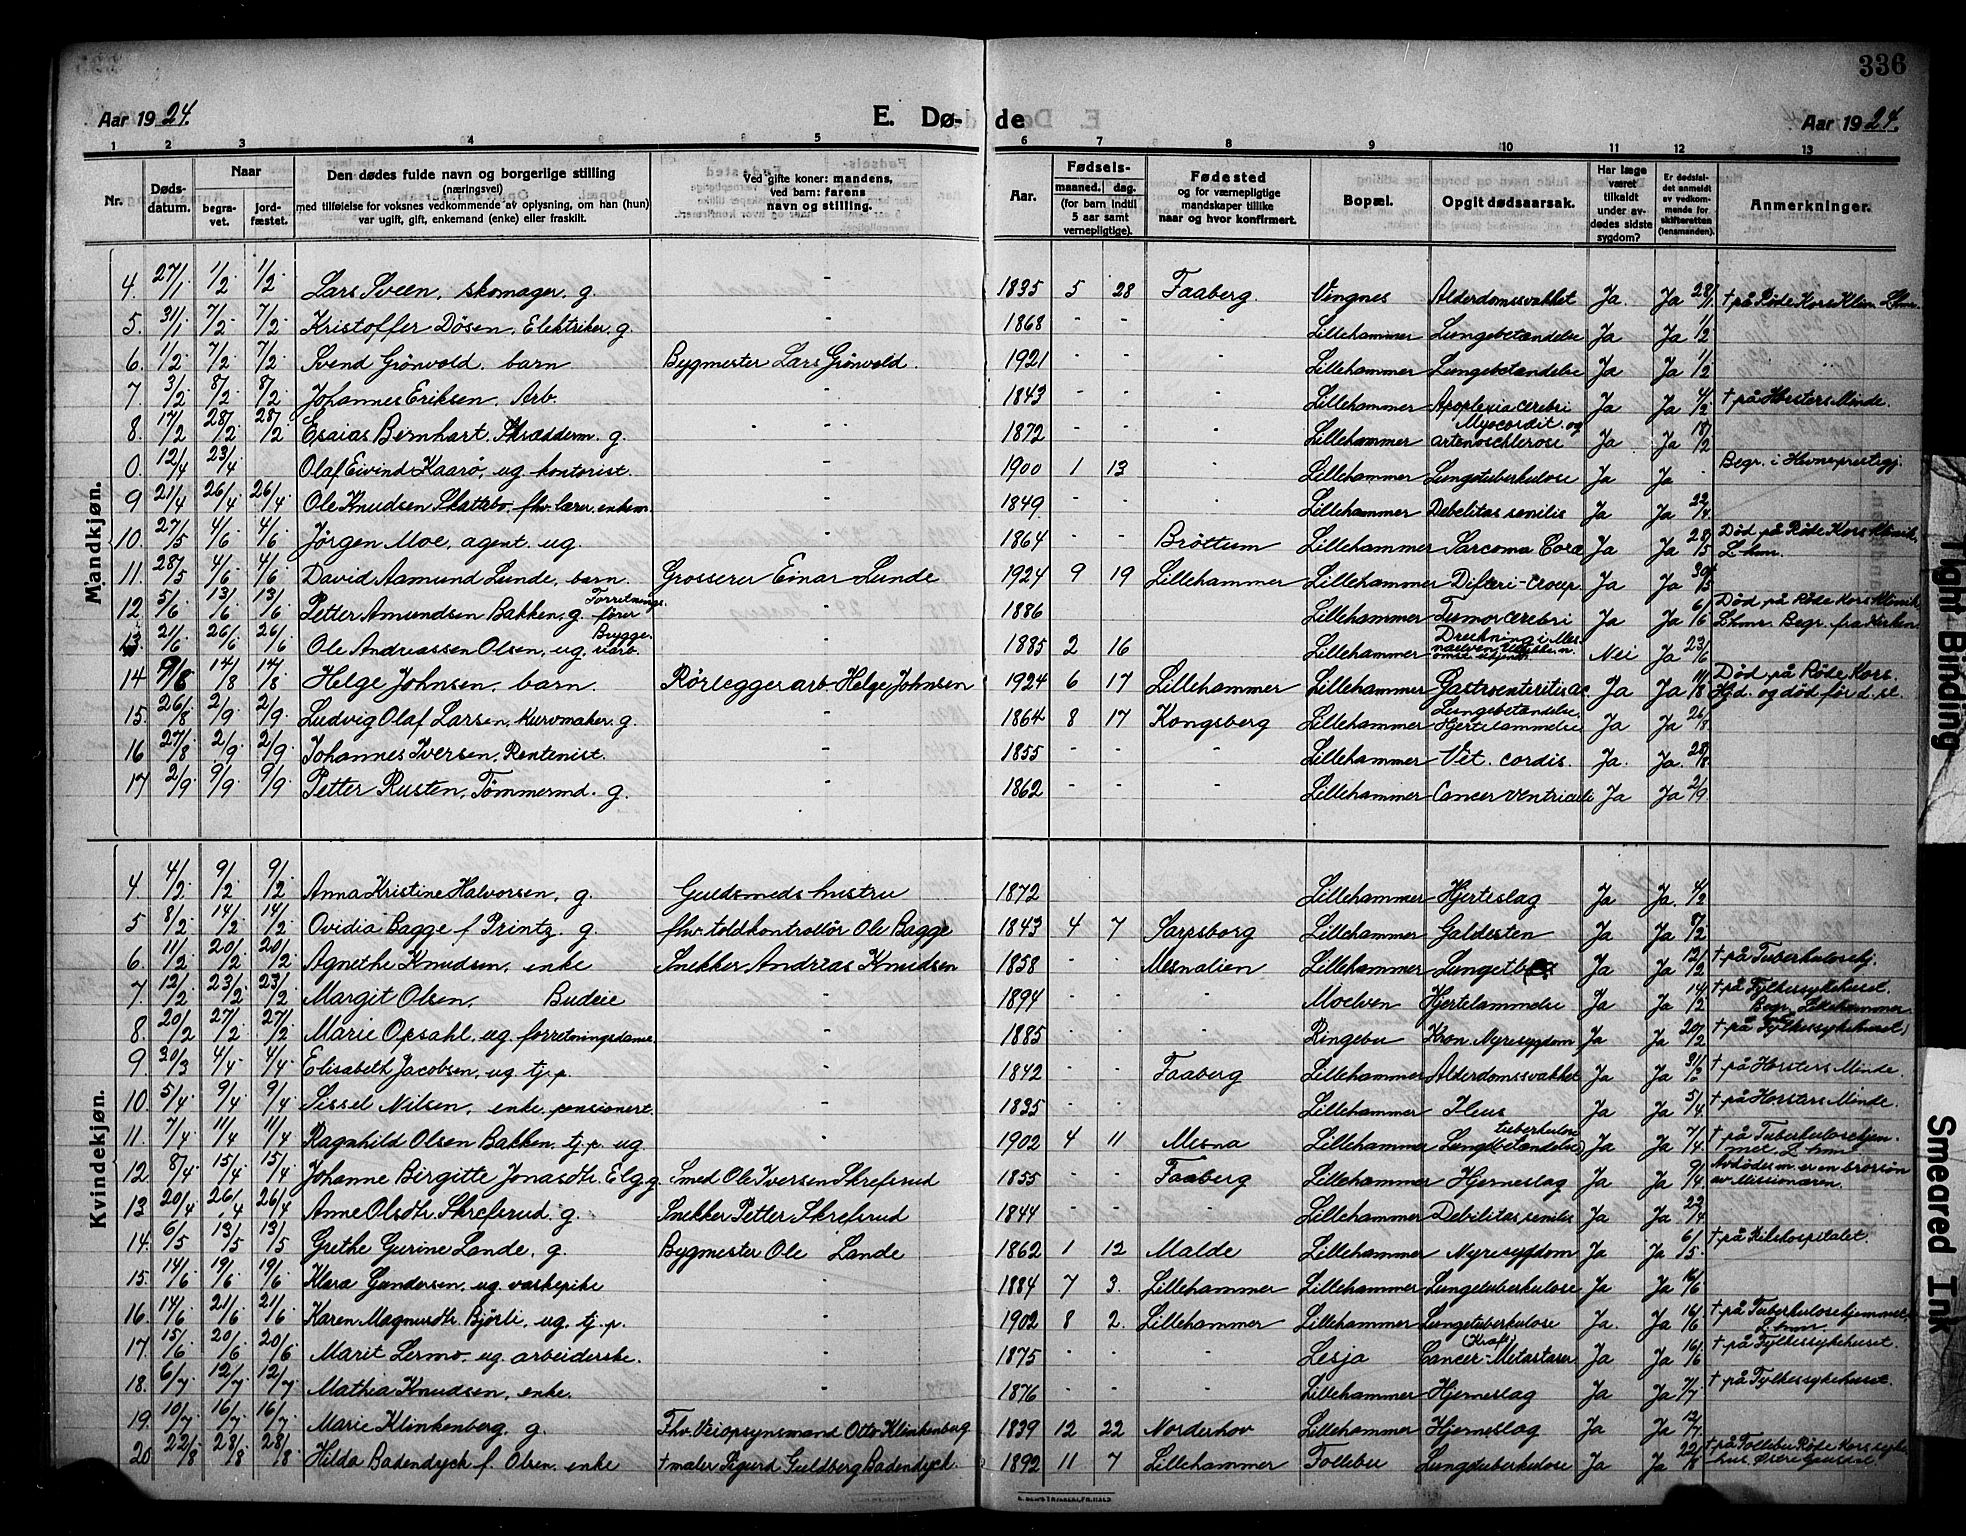 336
Aar 1924. E. Dø- de Aar 1924.
1 2 3 4 5 6 7 8 9 10 11 12 13
Nr. Døds-datum. Naar begra-vet. jord-fæstet. Den dødes fulde navn og borgerlige stilling (næringsvei) med tilføielse for voksnes vedkommende av oplysning, om han (hun) var ugift, gift, enkemand (enke) eller fraskilt. Ved gifte koner: mandens, ved barn: farens navn og stilling. Aar. Fødsels- maaned. dag. (for barn indtil 5 aar samt vernepligtige). Fødested og for værnepligtige mandskaper tillike naar og hvor konfirmert. Bopæl. Opgit dødsaarsak. Har læge været tilkaldt under av-dødes sidste sygdom? Er dødsfal-det anmeldt av vedkom-mende for skifteretten (lensmanden). Anmerkninger.
Mandkjøn.
4. 27/1 1/2 1/2 Lars Sveen, skomager. g. - 1835 5 28 Faaberg. Vingnes Alderdomssvakhet Ja. Ja 28/1 † på Røde Kors Klin. Lhmr
5. 31/1 7/2 7/2 Kristoffer Døsen, Elektriker, g. - 1868 - - - Lillehammer Lungebetændelse Ja Ja 1/2
6. 1/2 7/2 7/2 Svend Grönvold, barn Bygmester Lars Grönvold. 1921 - - - Lillehammer Lungebetændelse Ja Ja 1/2
7. 3/2 8/2 8/2 Johannes Eriksen, Arb. - 1843 - - - Lillehammer Apoplexia cerebri Ja Ja 4/2 † på Horsters Minde.
8. 17/2 28/2 28/2 Esaias Bernhart, Skrædderm. g. - 1872 - - - Lillehammer Myocordit. og artenoschlerose Ja Ja 18/2
0. 12/4 23/4 Olaf Eivind Kaarø, ug. kontorist. - 1900 1 13 - Lillehammer Lungetuberkulose Ja Ja - Begr. i
9 21/4 26/4 26/4 Ole Knudsen Skattebo, fhv. lærer, enkem - 1849 - - - Lillehammer Debelitas senilis Ja Ja 22/4
10. 27/5 4/6 4/6 Jørgen Moe, agent. ug. - 1864 - - Bröttum Lillehammer Sarcoma Ja Ja 28/5 Død på Røde Kors Klinik, L.hmr.
11. 28/5 4/6 4/6 David Aamund Lunde, barn. Grosserer Einar Lunde 1924 9 19 Lillehammer Lillehammer Difteri-croup Ja Ja 30/5
12. 5/6 13/6 13/6 Petter Amundsen Bakken, g. Forretnings-fører - 1886 Lillehammer Tumor cerebri Ja Ja 6/6 Død på Røde Kors Klinik, Lhmr. Begr. fra Kirken
13. 21/6 26/6 26/6 Ole Andreassen Olsen, ug. Brygge- - 1885 2 16 Lillehammer Drukning i Mes- Nei Ja 23/6
14 9/8 14/8 14/8 Helge Johnsen, barn. Rörleggerarb. Helge Johnsen 1924 6 17 Lillehammer Lillehammer Gastroenteritis ac. Ja Ja 11/8 Død på Røde Kors. Hjd. og død før d. st.
15. 26/8 2/9 2/9 Ludvig Olaf Larsen, Kurvmaker, g. - 1864 8 17 Kongsberg Lillehammer Lungebetændelse, Hjertelammelse Ja Ja 26/8
16 27/8 2/9 2/9 Johannes Iversen, Rentenist. - 1855 - - - Lillehammer Vit. cordis. Ja. Ja. 28/8
17 2/9. 9/9 9/9 Petter Rusten, Tømmermd. g. - 1862 - - - Lillehammer Cancer ventriculi Ja Ja 2/9
Kvindekjøn.
4 4/2 9/2 9/2 Anna Kristine Halvorsen, g. Guldsmeds hustru 1872 Lillehammer Hjerteslag Ja Ja. 4/2
5 8/2 14/2 14/2 Ovidia Bagge f. Printz. g. fhv. toldkontrollør Ole Bagge 1843 4 7 Sarpsborg Lillehammer Galdesten Ja Ja 8/2
6. 11/2 20/2 20/2 Agnethe Knudsen, enke Snekker Andreas Knudsen 1858 - - Mesnalien Lillehammer Ja Ja 12/2 † på Tuberkulosehj.
7. 12/2 23/2 23/2 Margit Olsen, Budeie - 1894 - - - Moelven Hjertelammelse Ja Ja 14/2 † på Fylkessykehuset. Begr. Lillehammer
8. 20/2 27/2 27/2 Marie Opsahl, ug. forretningsdame - 1885 - - - Ringebu Kron. Nyresygdom Ja Ja 20/2 † på Fylkessykehuset
9 30/3 4/4 4/4 Elisabeth Jacobsen, ug. tj.p. - 1842 Faaberg Lillehammer Alderdomssvakhet Ja Ja 31/3 † på Horsters Minde.
10. 5/4 9/4 9/4 Sissel Nilsen, enke pensionert. - 1835 Lillehammer Ileus Ja Ja 5/4 † på Horsters Minde.
11. 7/4 11/4 11/4 Ragnhild Olsen Bakken, tj.p. ug. - 1902 4 11 Mesna Lillehammer tuberkuløs Lungebetændelse Ja Ja 7/4 † på Tuberkulosehjem-met L.hmr
12. 8/4 15/4 15/4 Johanne Birgitte Jonasdtr. Elg g. Smed Ole Iversen Skrefsrud 1855 - - Faaberg Lillehammer Hjerneslag Ja Ja 9/4 Avdødes m. er en brorsön av Missionæren.
13 20/4 26/4 26/4 Anne Olsdtr. Skrefsrud, g. Snekker Petter Skrefsrud 1844 - - - Lillehammer Debilitas senilis Ja Ja 22/4
14. 6/5 13/5 13/5 Grethe Gurine Lande, g. Bygmester Ole Lande 1862 1 12 Malde Lillehammer Nyresygdom Ja Ja 6/5. † på Rikshospitalet.
15. 14/6 19/6 19/6 Klara Gundersen, ug. vaskepike - 1884 7 3. Lillehammer Lillehammer Lungetuberkulose Ja Ja 16/6
16. 14/6 21/6 21/6 Karen Magnusdtr. Bjørli, ug. tj.p. - 1902 8 2. Lillehammer Lillehammer Lungetuberkulose Ja. Ja 16/6 † på Tuberkulosehjemmet, L.hmr
17. 15/6 20/6 20/6 Marit Lermo, ug. arbeiderske. - 1875 - - - Lesja Cancer-(Kræft) Metastaser Ja Ja 16/6 † på Fylkessykehuset.
18. 6/7 12/7 12/7 Mathia Knudsen, enke. - 1876 - - - Lillehammer Hjerneslag Ja Ja 7/7 † på Fylkessykehuset.
19. 10/7 16/7 16/7 Marie Klinkenberg, g. Fhv. Veiopsynsmand Otto Klinkenberg 1839 12 22 Norderhov Lillehammer Hjerneslag Ja Ja 12/7
20 22/8 28/8 28/8 Hilda Badendyck f. Olsen, enke † maler Sigurd Guldberg Badendyck. 1892 11 7 Lillehammer Follebu Lungetuberkulose Ja Ja 22/8 † på Follebu Røde Kors syke-hus. Østre Gausdal.
Tight Binding
Smeared Ink